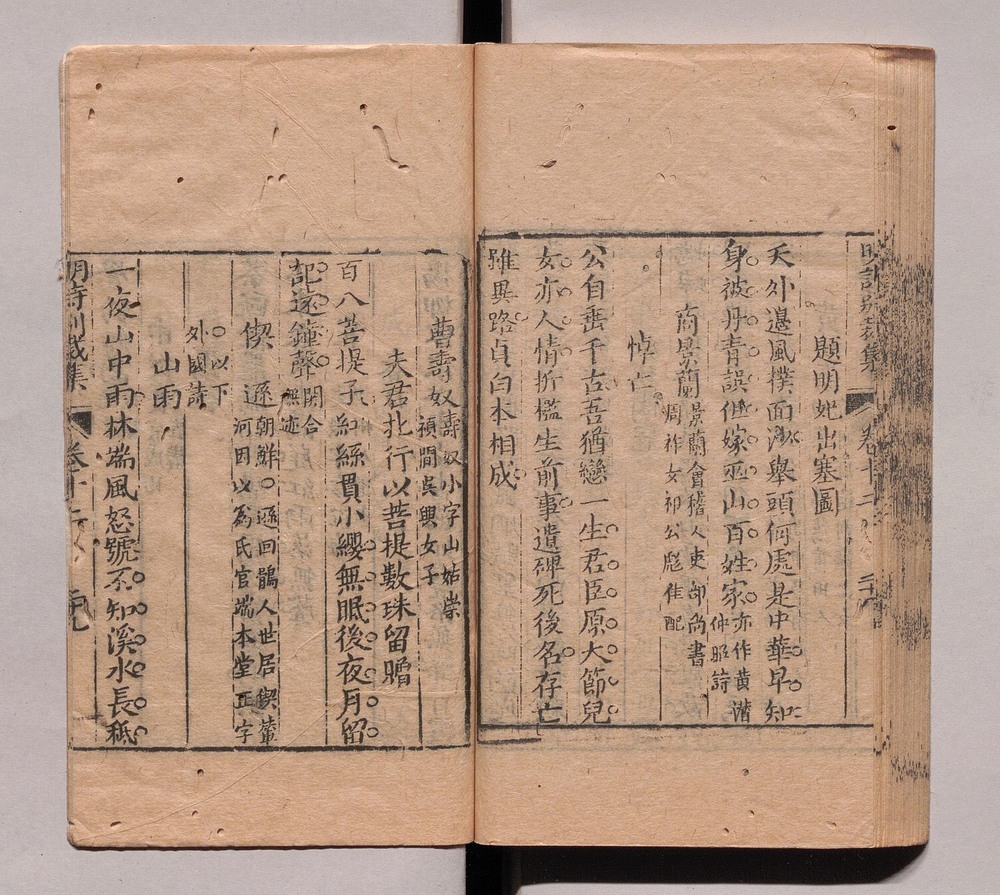 明詩別裁集 卷十二
題明妃出塞圖
天外邊風撲面沙舉頭何處是中華早知
身被丹青誤但嫁巫山百姓家亦作黃潛
仲昭詩
商景蘭景蘭會稽人吏部尚書
周祚女祁公彪佳配
悼亡
公自垂千古吾猶戀一生君臣原大節兒
女亦人情折檻生前事遺碑死後名存亡
雖異路貞白本相成
曹壽奴壽奴小字山姑崇
禎間吳興女子
夫君北行以菩提數珠留贈
百八菩提子紅絲貫小纓無眠後夜月留
記遠鐘聲開合
無迹
偰遜朝鮮○遜回鶻人世居偰輦
河因以爲氏官端本堂正字
○以下
外國詩
山雨
一夜山中雨林端風怒號不知溪水長秪
明詩別裁集 卷十二 二十九